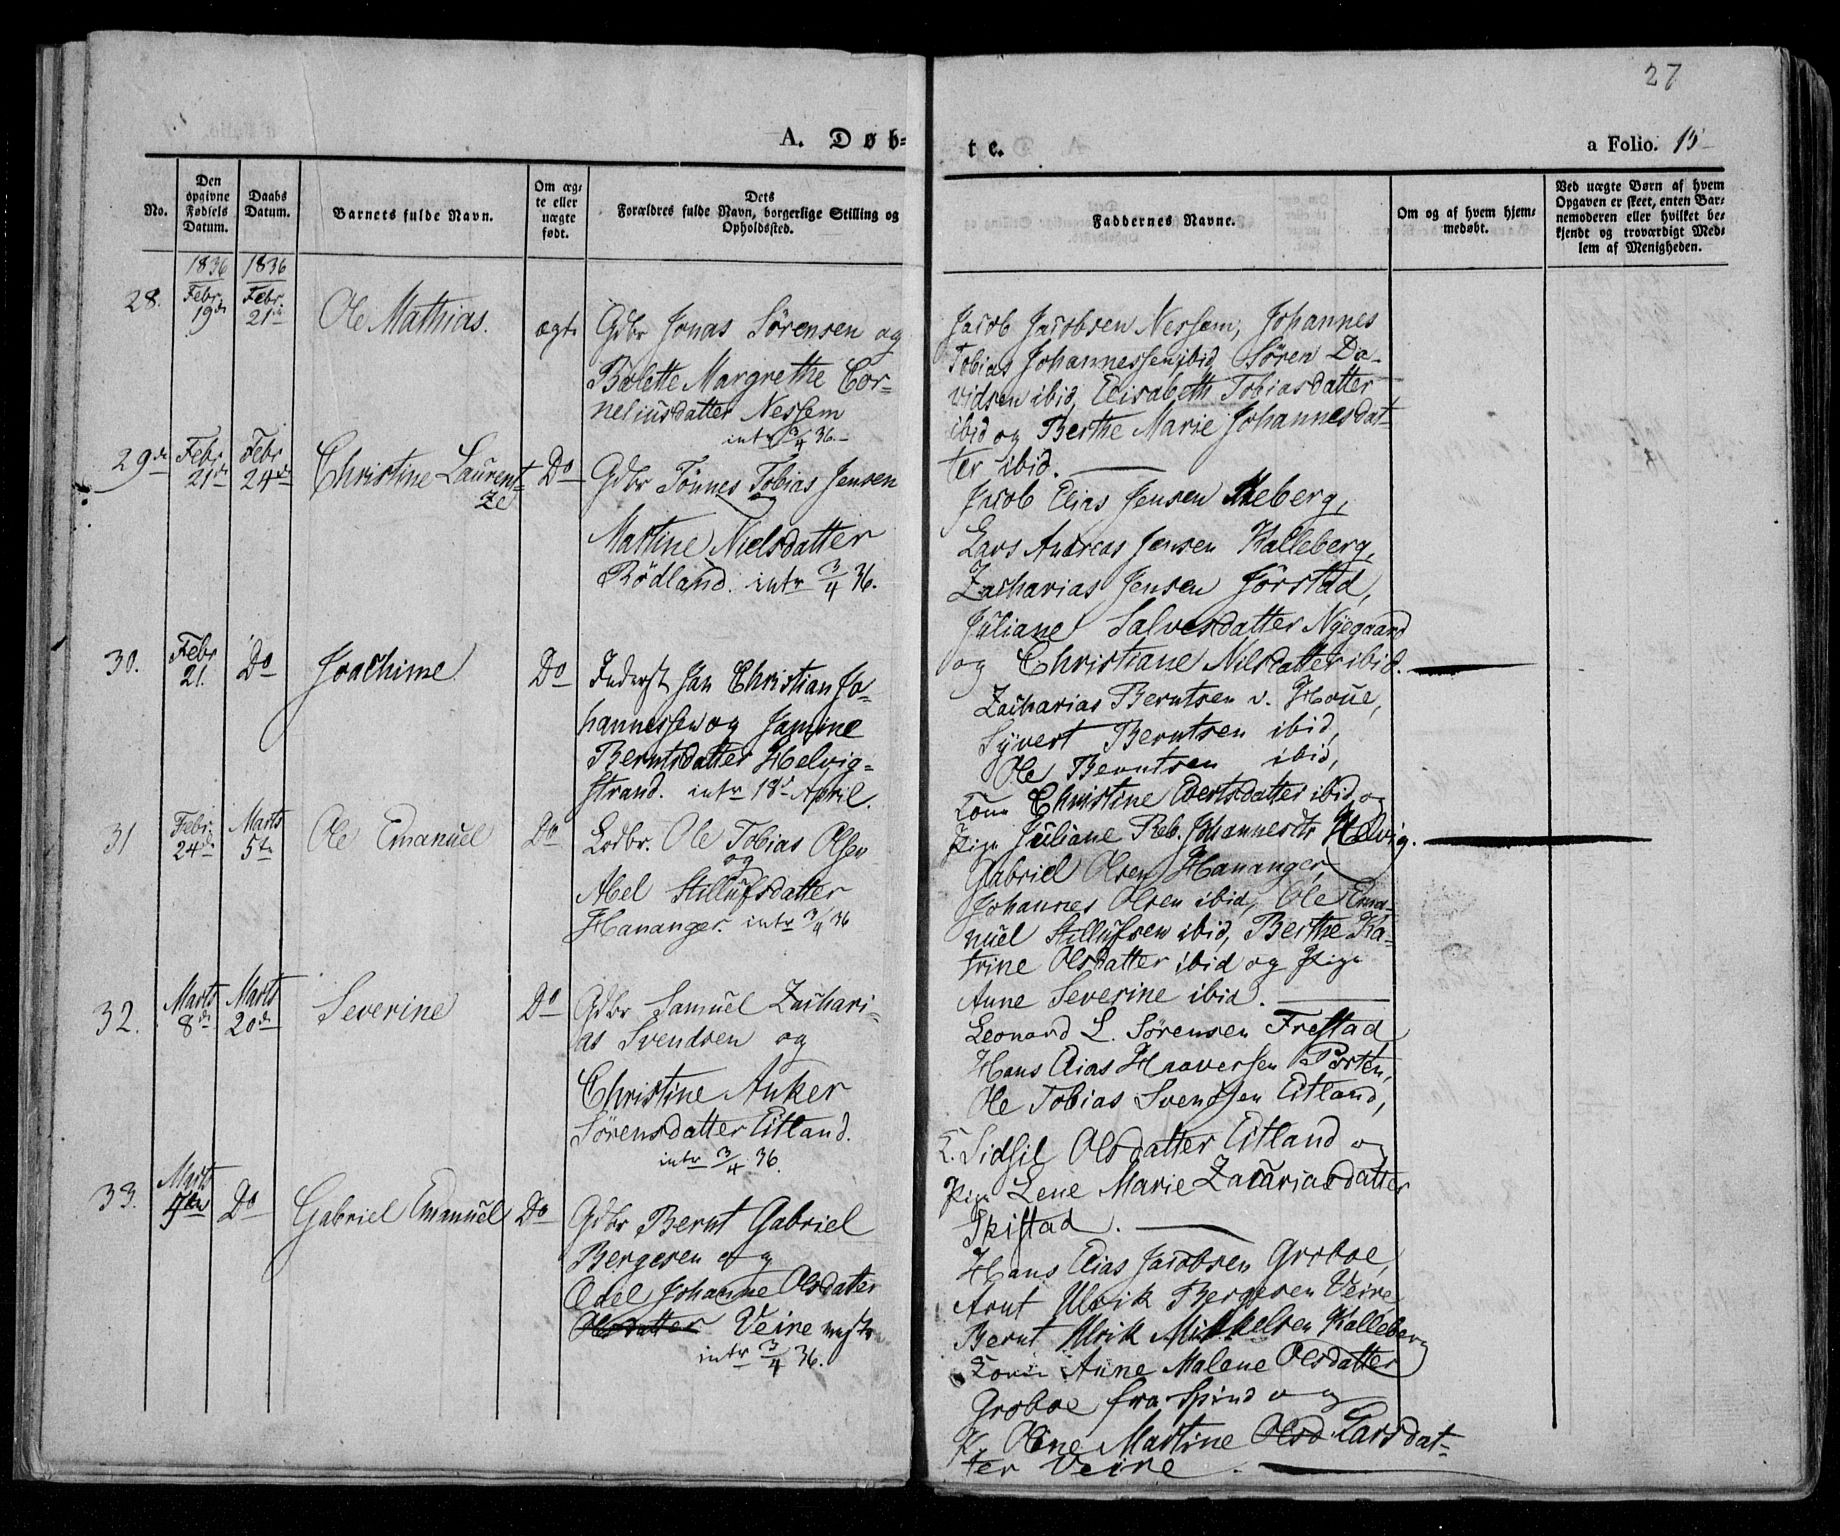 27
A. Døb-
te.
a Folio. 15
No.
Den opgivne Fødsels Datum.
Daabs Datum.
Barnets fulde Navn.
Om ægte eller uægte født.
Dets
Forældres fulde Navn, borgerlige Stilling og
Opholdssted.
Faddernes Navne.
Om og af hvem hjemmedøbt.
Ved uægte Børn af hvem
Opgaven er skeet, enten Bar-
nemoderen eller hvilket be-
kjendt og troværdigt Med-
lem af Menigheden.
1836 1836
28. Febr. 19de Febr. 21de Ole Mathias. ægte
Gdbr Jonas Sörensen og
Bolette Margrethe Cor-
neliusdatter Nessem
intr 3/4 36.
Jacob Jacobsen Nessem, Johannes
Tobias Johannessen ibid, Sören Da-
vidsen ibid, Elisabeth Tobiasdatter
ibid og Berthe Marie Johannesdat-
ter ibid.
29de Febr 21de Febr 24de Christine Laurent-
ze Do
Gdbr Tönnes Tobias Jensen
Martine Nielsdatter
Rödland. intr 3/4 36.
Jacob Elias Jensen Meberg,
Lars Andreas Jensen Kalleberg,
Zacharias Jensen Jörstad,
Juliane Salvesdatter Nyegaard
og Christiane Nilsdatter ibid.
30. Febr 21. Do Joachime Do
Inderst Jan Christian Jo-
hannessen og Jamine
Berntsdatter Helvig-
strand. intr 18de April.
Zacharias Berntsen v. Houe,
Syvert Berntsen ibid,
Ole Berntsen ibid,
Kone Christine Evertsdatter ibid og
Pige Juliane Reb. Johannesdtr Helvig.
31 Febr. 24de Marts 5te Ole Emanuel Do
Ledbr. Ole Tobias Olsen
og
Abel Stillufsdatter
Hananger. intr 3/4 36
Gabriel Olsen Hananger,
Johannes Olsen ibid, Ole Ema-
nuel Stillufsen ibid, Berthe Ka-
trine Olsdatter ibid og Pige
Anne Severine ibid.
32. Marts 8de Marts 20de Severine Do
Gdbr Samuel Zachari-
as Svendsen og
Christine Anker
Sörensdatter Eitland.
intr 3/4 36.
Leonard L. Sörensen Frestad
Hans Elias Haaversen Porten,
Ole Tobias Svendsen Eitland,
K. Sidsil Olsdatter Eitland og
Pige Lene Marie Zacariasdatter
Skistad.
33. Marts Do Gabriel Emanuel Do
Gdbr Bernt Gabriel
Bergesen og
Axel Johanne Olsdatter
Olsdatter Veire
intr 3/4 36.
Hans Elias Jacobsen Groboe,
Arnt Ulrik Bergesen Veire
Bernt Ulrik Mikkelsen Kalleberg
Kone Anne Malene Olsdatter
Groboe fra Spind og
P. Oline Martine Olsd Larsdat-
ter Veire.